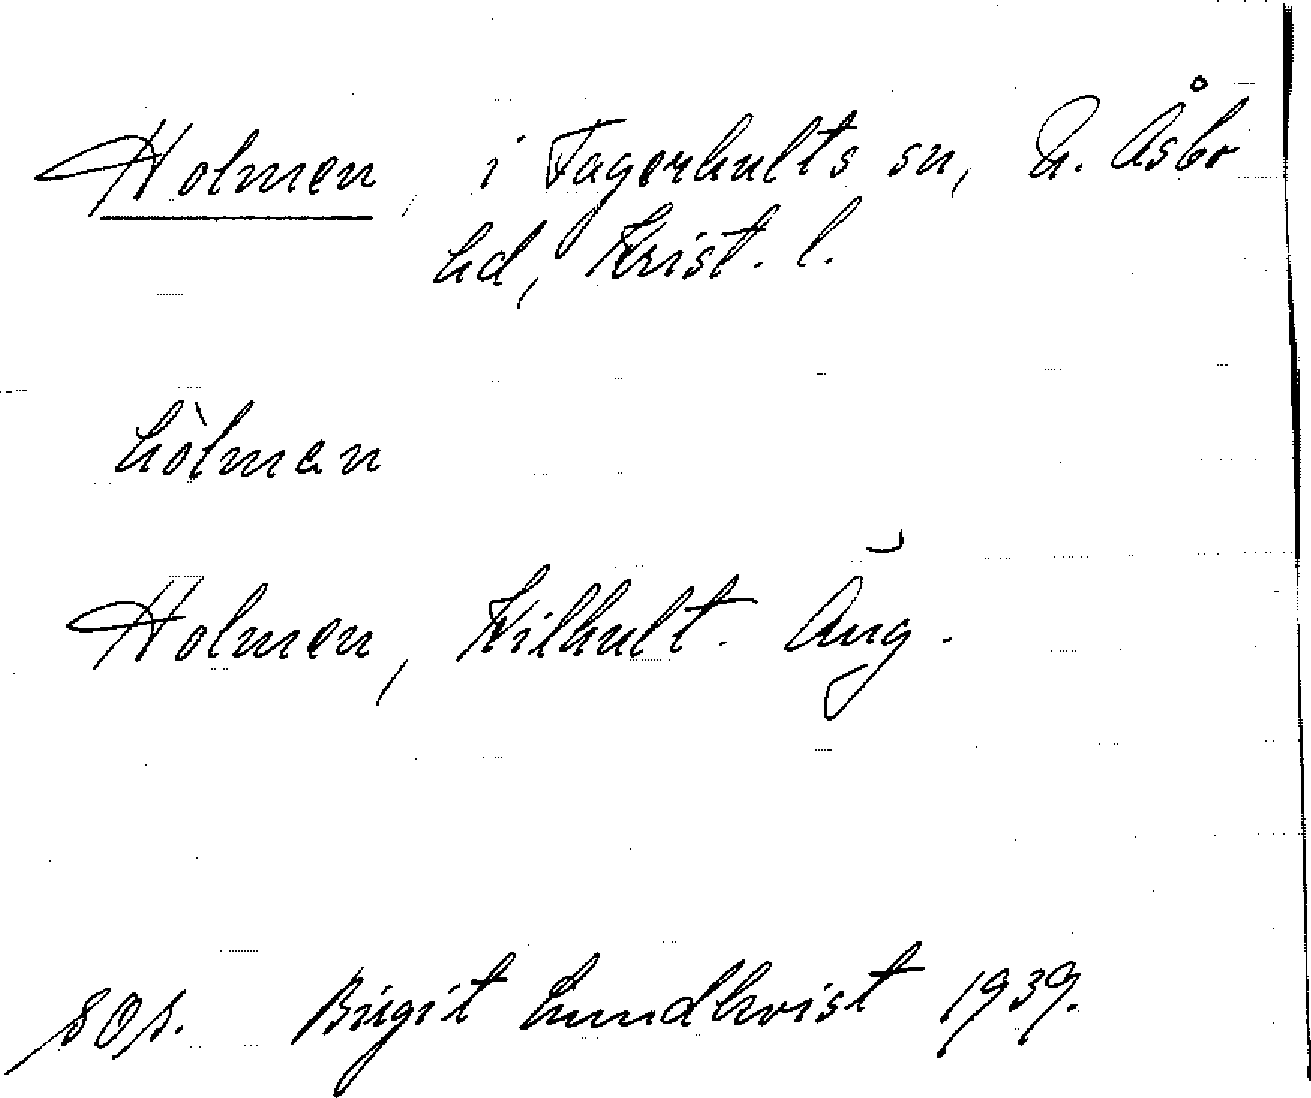 Holmen, i Fagerhults sn, N. Åsbo
hd, Krist. l.
hòlmən
Holmen, Kilhult. Aug.
sos. Birgit Lundkvist 1939.